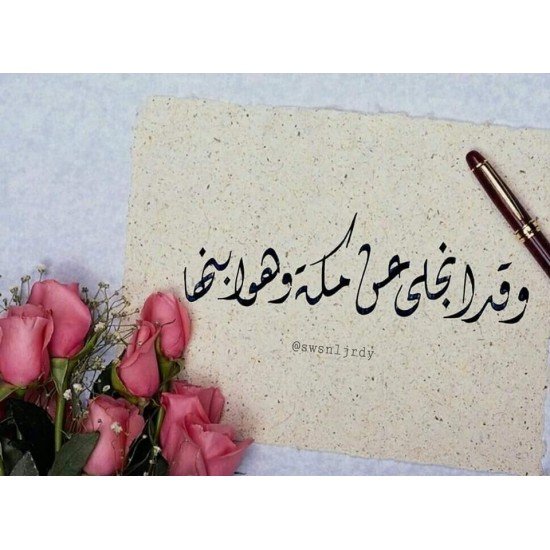 وقد انجلى عن مكة وهو ابنها
@swsnljrdy